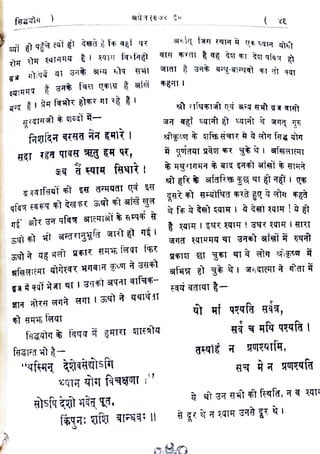 सिद्धयोग )
अप्रैल १९७८ ई०
( ४६
ज्यों ही पहुँचे त्यों ही देखते हैं कि वहां पर
रोम रोम श्याममय है । श्याम विरहिणी
व्रज गोपियें या उनके अन्य गोप सभी
श्याममय हैं उनके चित्त एकाग्र हैं आखें
बन्द हैं । प्रेम विभोर होकर गा रहे हैं ।
सूरदासजी के शब्दों में—
निशदिन बरसत नेन हमारे ।
सदा रहत पावस ऋतु हम पर,
जब तैं स्याम सिधारे ।
व्रजवासियों की इस तन्मयता एवं इस
पवित्र स्वरूप को देखकर ऊधो की आँखें खुल
गई और उन पवित्र आत्माओं के सम्पर्क से
ऊधो को भी अन्तरानुभूति जारी हो गई ।
ऊधो ने यह भली प्रकार समझ लिया कि
अखिलात्मा योगेश्वर भगवान कृष्ण ने उसको
व्रज में क्यों भेजा था । उसको अपना वाचिक-
ज्ञान नीरस लगने लगा । ऊधो ने यथार्थता
को समझ लिया
सिद्धयोग के विषय में हमारा शास्त्रीय
सिद्धान्त भी है—
"यस्मिन् देशेवसेद्योगि
ध्यान योग विचक्षणा ।"
सोऽपि देशो भवेत् पूत,
किंपुनः शशि बान्धवः ॥
अर्थात् जिस स्थान में एक ध्यान योगी
वास करता है वह देश का देश पवित्र हो
जाता है उनके बन्धु-बान्धवों का तो क्या
कहना ।
श्री राधिकाजी एवं अन्य सभी व्रज वासी
जन वहां ध्यानी ही ध्यानी थे जगत् गुरु
श्रीकृष्ण के शक्ति संचार से ये लोग सिद्ध योग
में पूर्णतया प्रवेश कर चुके थे । अखिलात्मा
के मथुरागमन के बाद इनकी आंखों के सामने
श्री हरि के अतिरिक्त कुछ था ही नहीं । एक
दूसरे को सम्बोधित करते हुए ये लोग कहते
थे कि ये देखो श्याम । ये देखो श्याम ! ये ही
है श्याम । इधर श्याम ! उधर श्याम । सारा
जगत श्याममय था उनकी आंखों में रुहानी
प्रकाश छा चुका था ये लोग श्रीकृष्ण में
अभिन्न हो चुके थे । जगदात्मा ने गीता में
स्वयं बताया है—
यो मां पश्यति सर्वत्र,
सर्वं च मयि पश्यति ।
तस्याहं न प्रणश्यामि,
सच मे न प्रणश्यति
ये थी उन सभी की स्थिति, न व श्याम
से दूर थे न श्याम उनसे दूर थे ।